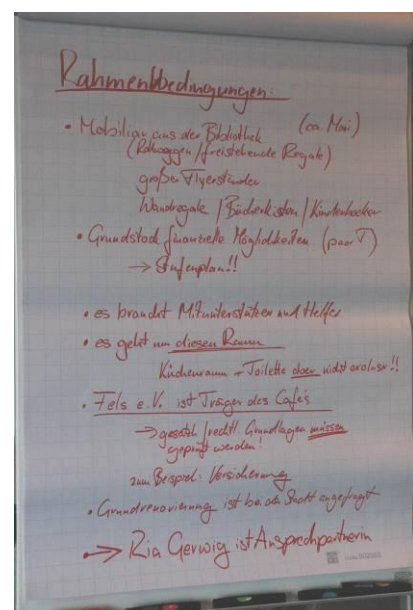 Rahmenbedingungen:
• Mobiliar aus der Bibliothek (ca Mai)
(Rollwaggen / freistehende Regale)
großer Flyerständer
Wandregale / Bücherkisten / Kinderhocker
• Grundstock finanzielle Möglichkeiten (paar T)
→ Stufenplan!!
• es braucht Mitunterstützer und Helfer
• es geht um diesen Raum
Küchenraum + Toilette aber nicht exclusiv!!
• Fels e.V. ist Träger des Cafés
→ gesetzl/rechtl. Grundlagen müssen
geprüft werden!
zum Beispiel: Versicherung
• Grundrenovierung ist bei der Stadt angefragt
•→ Ria Gerwig ist Ansprechpartnerin